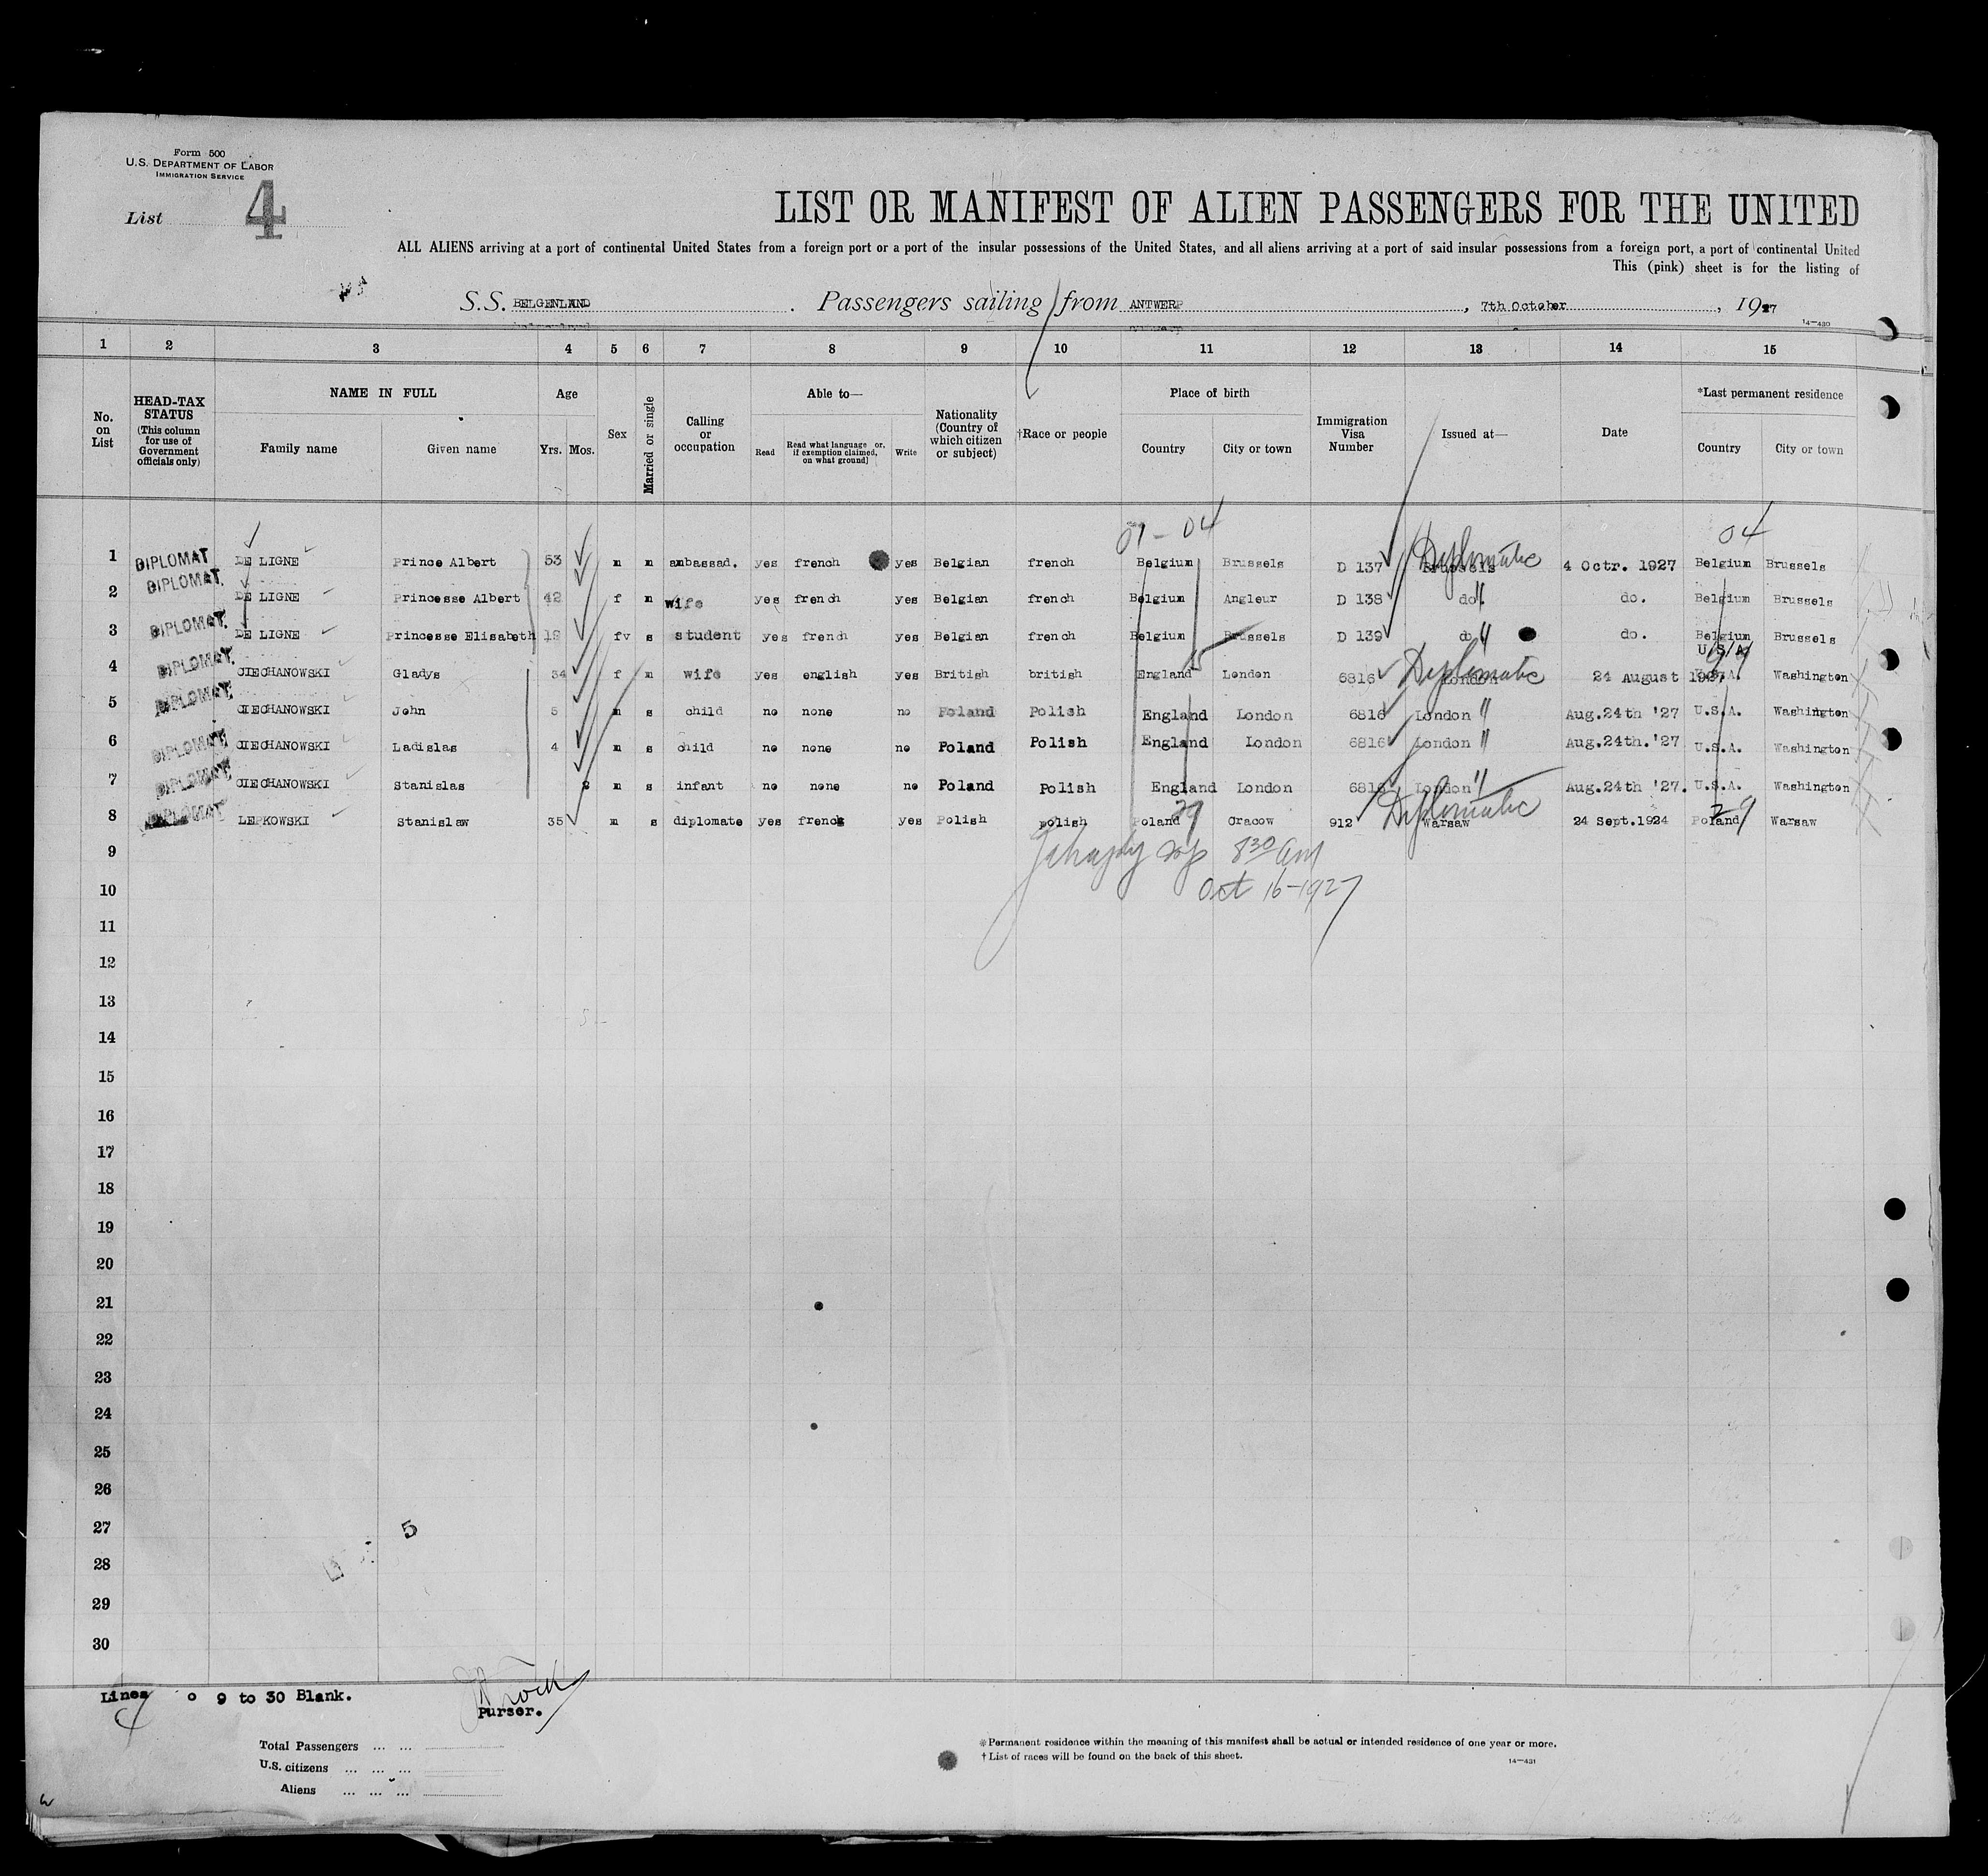 Form 500
U.S. DEPARTMENT OF LABOR
IMMIGRATION SERVICE
List 4
LIST OR MANIFEST OF ALIEN PASSENGERS FOR THE UNITED
ALL ALIENS arriving at a port of continental United States from a foreign port or a port of the insular possessions of the United States, and all aliens arriving at a port of said insular possessions from a foreign port, a port of continental United
This (pink) sheet is for the listing of
S.S. BELGENLAND . Passengers sailing from ANTWERP , 7th October , 1927
14-430
1 2 3 4 5 6 7 8 9 10 11 12 13 14 15
No. on List
HEAD-TAX STATUS (This column for use of Government officials only)
NAME IN FULL
Family name Given name
Age
Yrs. Mos.
Sex
Married or single
Calling or occupation
Able to—
Read
Read what language or, if exemption claimed, on what ground]
Write
Nationality (Country of which citizen or subject)
†Race or people
Place of birth
Country City or town
Immigration Visa Number
Issued at—
Date
*Last permanent residence
Country City or town
01-04 04
1 DIPLOMAT DE LIGNE Prince Albert 53 m m ambassad. yes french yes Belgian french Belgium Brussels D 137 Brussels Diplomatic 4 Octr. 1927 Belgium Brussels
2 DIPLOMAT. DE LIGNE Princesse Albert 42 f m wife yes french yes Belgian french Belgium Angleur D 138 do " do. Belgium Brussels
3 DIPLOMAT. DE LIGNE Princesse Elisabeth 19 fv s student yes french yes Belgian french Belgium Brussels D 139 do " do. Belgium Brussels
U.S.A.
4 DIPLOMAT. CIECHANOWSKI Gladys 34 f m wife yes english yes British british England London 6816 London Diplomatic 24 August 1927 U.S.A. Washington
5 DIPLOMAT. CIECHANOWSKI John 5 m s child no none no Poland Polish England London 6816 London " Aug.24th '27 U.S.A. Washington
6 DIPLOMAT. CIECHANOWSKI Ladislas 4 m s child no none no Poland Polish England London 6816 London " Aug.24th.'27 U.S.A. Washington
7 DIPLOMAT. CIECHANOWSKI Stanislas m s infant no none no Poland Polish England London 6816 London " Aug.24th '27. U.S.A. Washington
8 DIPLOMAT LEPKOWSKI Stanislaw 35 m s diplomate yes french yes Polish polish Poland 29 Cracow 912 Warsaw Diplomatic 24 Sept.1924 Poland 29 Warsaw
9 8 30 am
10 Oct 16-1927
11
12
13
14
15
16
17
18
19
20
21
22
23
24
25
26
27 5
28
29
30
Lines o 9 to 30 Blank.
Purser.
Total Passengers ... ...
U.S. citizens ... ... ...
Aliens ... ... ...
*Permanent residence within the meaning of this manifest shall be actual or intended residence of one year or more.
†List of races will be found on the back of this sheet.
14-431